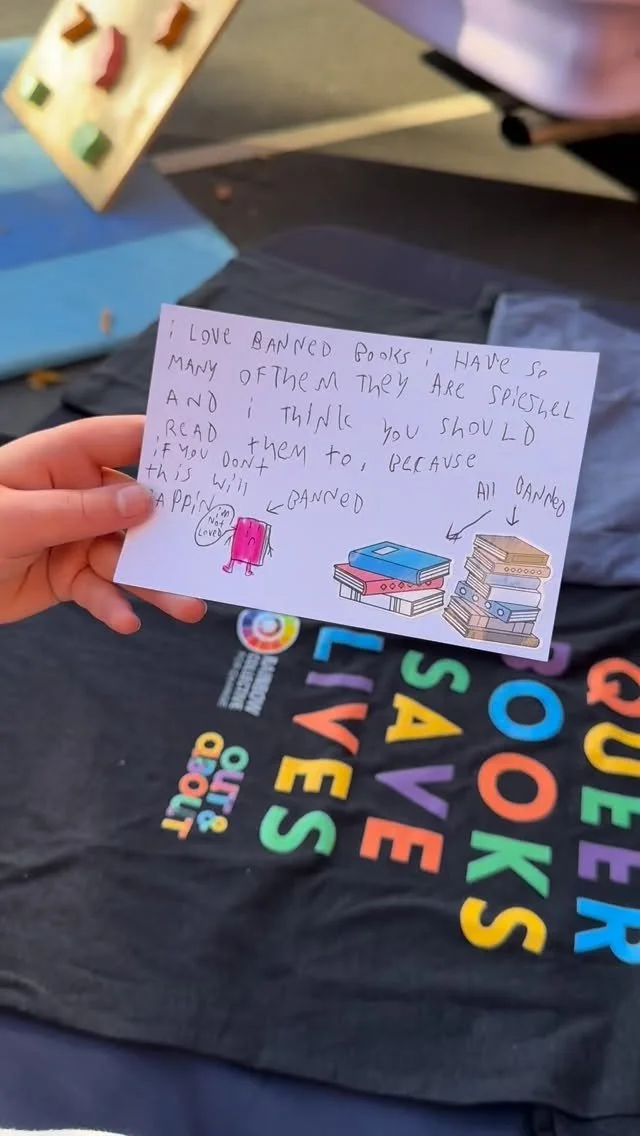 i LOVE BANNED BOOKS i HAVE SO
MANY OF THEM THEY ARE SPIESHEL
AND i THINK YOU SHOULD
READ them to, BECAUSE
iF YOU DONT
this will
HAPPIN
← BANNED
i'm
Not
Loved
All BANNED
QUEER
BOOKS
SAVE
LIVES
RAINBOW
out &
about